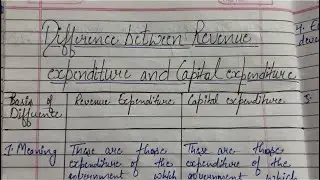 Difference between Revenue
expenditure and Capital expenditure
Basis of Difference
Revenue Expenditure
Capital expenditure
1. Meaning
These are those
expenditure of the
government which
These are those
expenditure of the
government which
4.